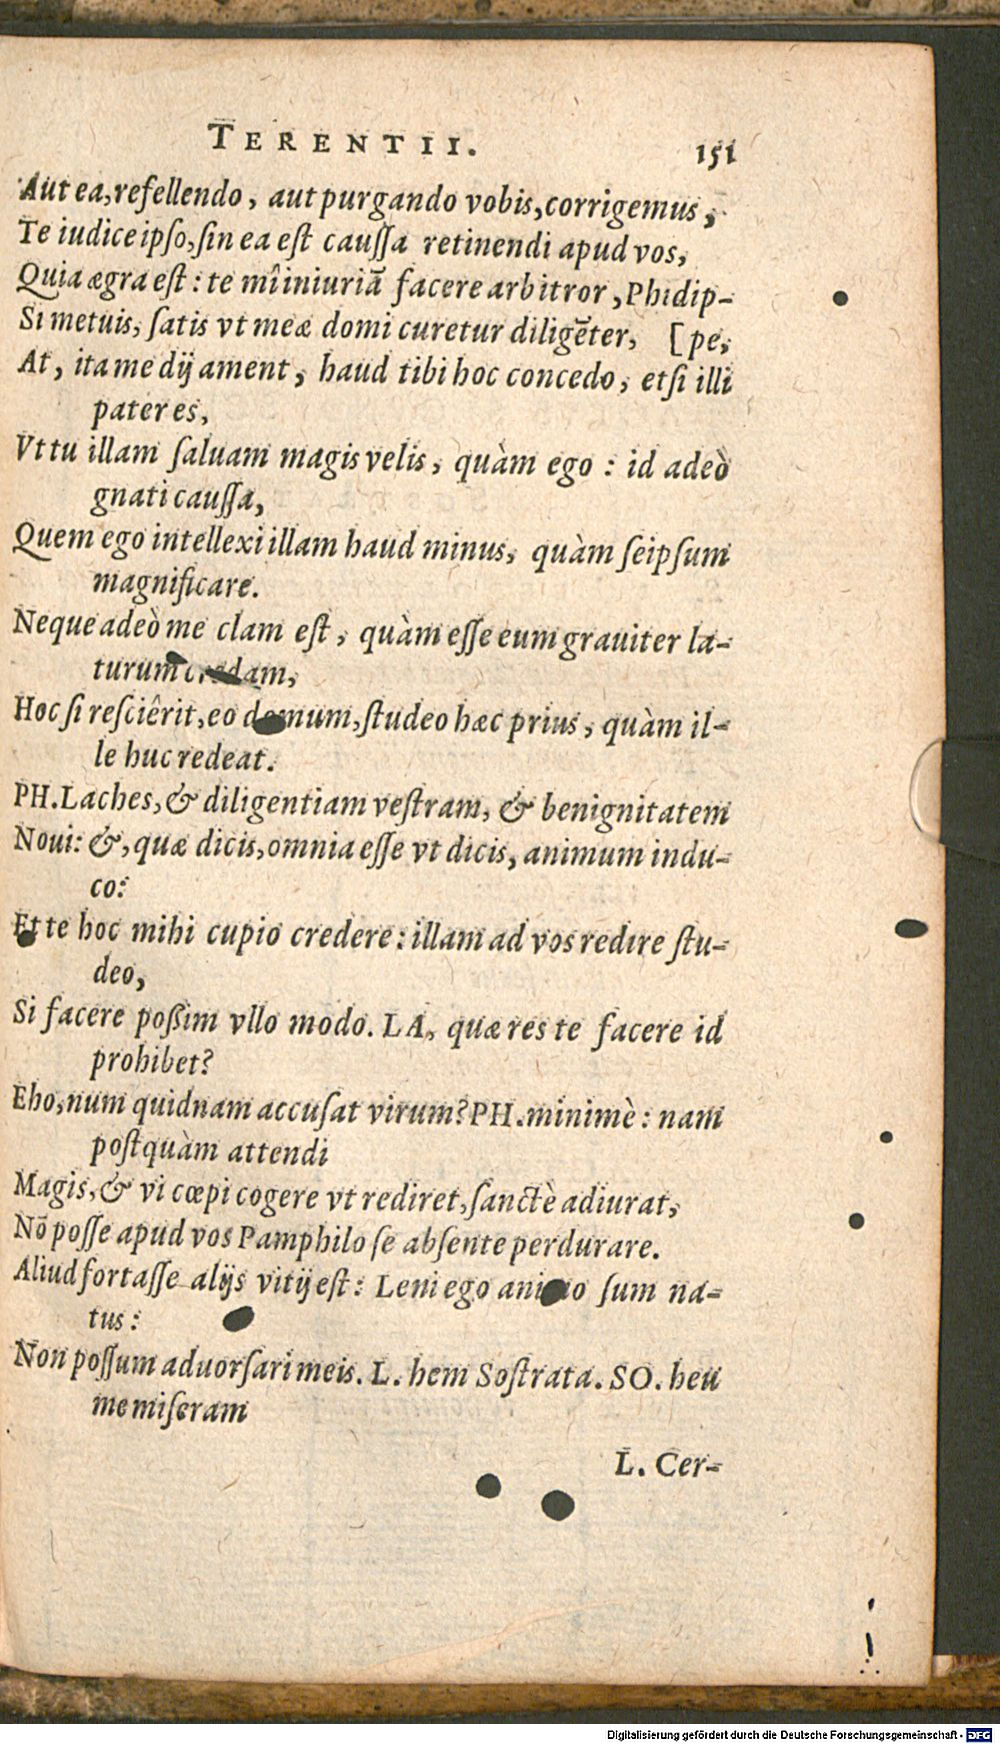 TERENTII. 151
Aut ea, refellendo, aut purgando vobis, corrigemus,
Te iudice ipso, ſin ea eſt cauſſa retinendi apud vos,
Quia ægra eſt: te mî iniuriā facere arbitror, Phidip-
Si metuis, ſatis vt meæ domi curetur diligēter, [pe,
At, ita me dij ament, haud tibi hoc concedo, etſi illi
pater es,
Vt tu illam ſaluam magis velis, quàm ego: id adeò
gnati cauſſa,
Quem ego intellexi illam haud minus, quàm ſeipſum
magnificare.
Neque adeò me clam eſt, quàm eſſe eum grauiter la-
turum credam,
Hoc ſi reſciêrit, eo domum, ſtudeo hæc prius, quàm il-
le huc redeat.
PH. Laches, & diligentiam veſtram, & benignitatem
Noui: &, quæ dicis, omnia eſſe vt dicis, animum indu-
co:
Et te hoc mihi cupio credere: illam ad vos redire ſtu-
deo,
Si facere poßim vllo modo. LA, quæ res te facere id
prohibet?
Eho, num quidnam accuſat virum? PH. minimè: nam
poſtquàm attendi
Magis, & vi cœpi cogere vt rediret, ſanctè adiurat,
Nō poſſe apud vos Pamphilo ſe abſente perdurare.
Aliud fortaſſe alijs vitij eſt: Leni ego animo ſum na-
tus:
Non poſſum aduorſari meis. L. hem Soſtrata. SO. heu
me miſeram
L. Cer-
Digitalisierung gefördert durch die Deutsche Forschungsgemeinschaft - DFG